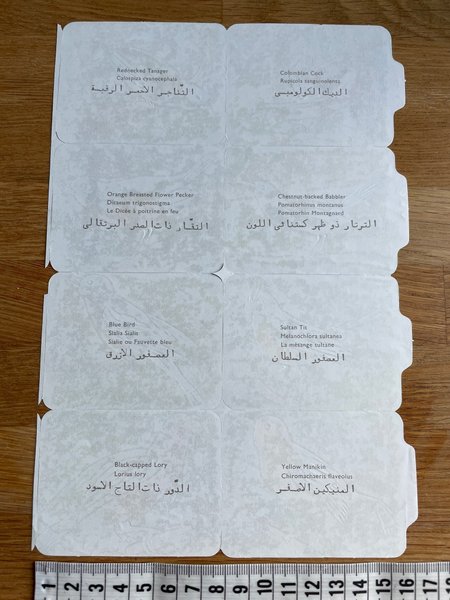 Rednecked Tanager
Calospiza cyanocephala
التناجر الاحمر الرقبة
Colombian Cock
Rupicola sanguinolenta
الديك الكولومبسى
Orange Breasted Flower Pecker
Dicaeum trigonostigma
Le Dicée à poitrine en feu
النقار ذات الصدر البرتقالى
Chestnut-backed Babbler
Pomatorhinus montanus
Pomatorhin Montagnard
الترتار ذو ظهر كستنائى اللون
Blue Bird
Sialia Sialis
Sialie ou Fauvette bleu
العصفور الازرق
Sultan Tit
Melanochlora sultanea
La mésange sultane
العصفور السلطان
Black-capped Lory
Lorius lory
الدّور ذات التاج الاسود
Yellow Manikin
Chiromachaeris flaveolus
المنيكين الاصفر
1 2 3 4 5 6 7 8 9 10 11 12 13 14 15 16 17 18